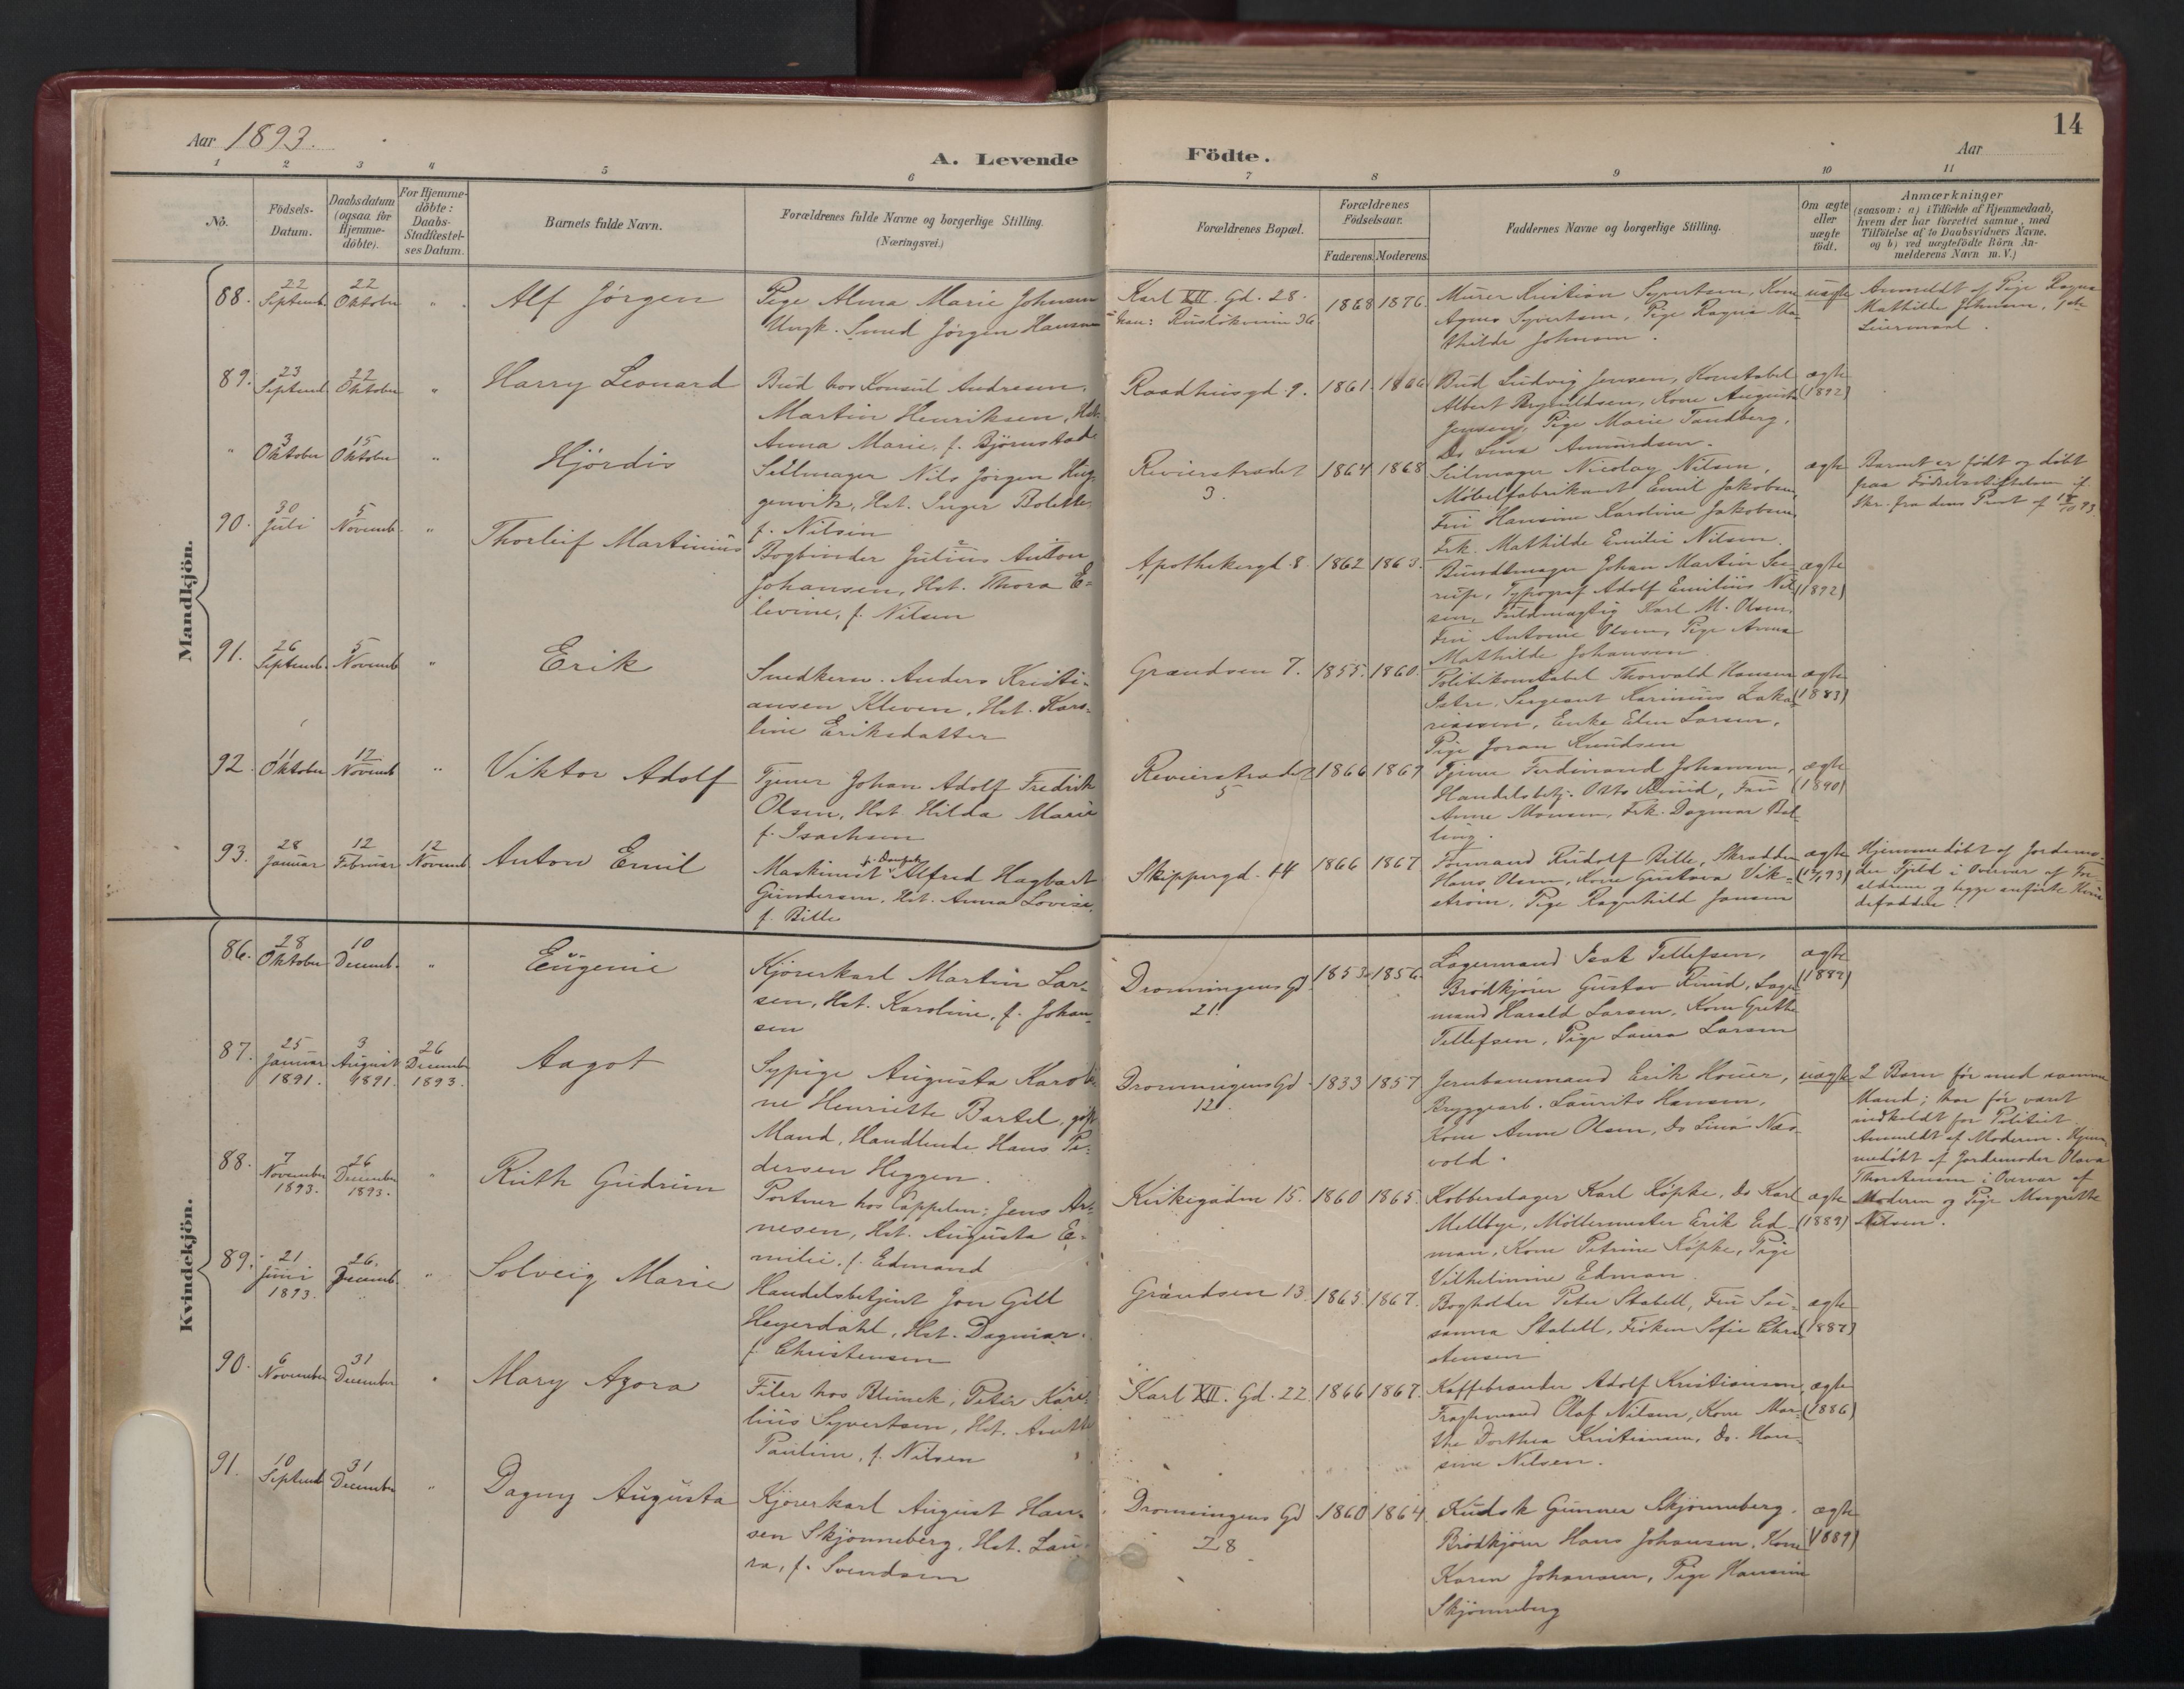 14
Aar 1893.
A. Levende Födte.
Aar
1 2 3 4 5 6 7 8 9 10 11
No.
Födsels-Datum.
Daabsdatum (ogsaa for Hjemme-döbte).
For Hjemme-döbte: Daabs-Stadfæstel-ses Datum.
Barnets fulde Navn.
Forældrenes fulde Navne og borgerlige Stilling.
(Næringsvei.)
Forældrenes Bopæl.
Forældrenes Födselsaar.
Faderens. Moderens.
Faddernes Navne og borgerlige Stilling.
Om ægte eller uægte födt.
Anmærkninger
(saasom: a) i Tilfælde af Hjemmedaab,
hvem der har forrettet samme, med
Tilföielse af to Daabsvidners Navne.
og b) ved uægtefödte Börn An-
melderens Navn m. V.)
Mandkjön.
88. 22 Septemb. 22 Oktober " Alf Jörgen
Pige Alma Marie Johnsen
Ungk. Smed Jörgen Hansen
Karl XII. Gd. 28.
han: Ruslökveien 36
1868 1876.
Murer Kristian Syvertsen, Kone
Agnes Syvertsen, Pige Ragna Ma-
thilde Johnsen.
uægte
Anmeldt af Pige Ragna
Mathilde Johnsen,
89. 23 Septemb. 22 Oktober " Harry Leonard
Bud hos Konsul Andresen,
Martin Henriksen, Hst.
Anna Marie, f. Björnstad
Raadhusgd. 9. 1861. 1866
Bud Ludvig Jensen, Konstabel
Albert Brynildsen, Kone Augusta
Jensen, Pige Marie Tandberg,
Do Lina Amundsen.
ægte (1892)
" 3 Oktober 15 Oktober " Hjördis
Seilmager Nils Jörgen Hug-
genvik, Hst. Inger Bolette
f. Nilsen
Revierstrædet 3. 1864 1868
Seilmager Nicolay Nilsen,
Möbelfabrikant Emil Jakobsen,
Fru Hansine Karoline Jakobsen,
Frk. Mathilde Emilie Nilsen.
ægte
Barnet er födt og döbt
paa Födselsstiftelsen if.
Skr. fra dens Præst af 18/10 93.
90. 30 Juli 5 Novemb. " Thorleif Martinius
Bogbinder Julius Anton
Johansen, Hst. Thora E-
levine, f. Nilsen
Apothekergd. 8. 1862 1863.
Bundtmager Johan Martin
Typograf Adolf Emilius Nil-
sen, Fuldmægtig Karl M. Olsen,
Fru Antonie Olsen, Pige Anna
Mathilde Johansen.
ægte (1892)
91. 26 Septemb. 5 Novemb. " Erik
Snedkersv. Anders Kristi-
ansen Kleven, Hst. Karo-
line Eriksdatter
Grændsen 7. 1855. 1860.
Politikonstabel Thorvald Hansen
Sergeant Karinius Zaka-
riassen, Enke Elen Larsen,
Pige Joran Knudsen
ægte (1883)
92. 11 Oktober 12 Novemb. " Viktor Adolf
Tjener Johan Adolf Fredrik
Olsen, Hst. Hilda Marie
f. Isachsen
Revierstrædet 5 1866 1867
Tjener Ferdinand Johansen,
Handelsbetj. Otto Rund, Fru
Anne Monsen, Frk. Dagmar Bol-
ling.
ægte (1890)
93. 28 Januar 12 Februar 12 Novemb. Anton Emil
Maskinist Alfred Hagbart
Gundersen, Hst. Anna Lovise,
f. Bille
Skippergd. 14 1866 1867
Formand Rudolf Bille, Skrædder
Hans Olsen, Kone Gustava Vik-
ström, Pige Ragnhild Jansen
ægte
Hjemmedöbt af Jordemo-
der Fjeld i Overvær af For-
ældrene og begge anförte Kvin-
defaddere.
Kvindekjön.
86. 28 Oktober 10 Decemb. " Eugenie
Kjörerkarl Martin Lar-
sen, Hst. Karoline, f. Johan-
sen
Dronningens Gd. 21. 1853. 1856.
Lagermand Isak Tellefsen,
Brödkjörer Gustav Rund, Lager-
mand Harald Larsen, Kone Grethe
Tellefsen, Pige Laura Larsen
ægte (1882)
87. 25 Januar 1891. 3 August 1891. 26 Decembr 1893. Aagot
Sypige Augusta Karoli-
ne Henriette Bartel, gift
Mand, Handlende Hans Pe-
dersen Heggen.
Dronningens Gd 12. 1833 1857
Jernbanemand Erik Houer,
Bryggearb. Laurits Hansen,
Kone Anne Olsen, Do Lina Næs-
vold.
uægte
2 Barn för med samme
Mand; har för været
indkaldt for Politiet.
Anmeldt af Moderen. Hjem-
medöbt af Jordemoder Olava
Thorstensen i Overvær af
Moderen og Pige Margrethe
Nilsen.
88. 7 November 1893. 26 December 1893. " Ruth Gudrun
Portner hos Cappelen; Jens Ar-
nesen, Hst. Augusta E-
milie, f. Edmand
Kirkegaden 15. 1860 1865.
Kobberslager Karl Köpke, Do Karl
Mellbye, Möllermester Erik Ed-
man, Kone Petrine Köpke, Pige
Vilhelmine Edman.
ægte (1889)
89. 21 Juni 1893. 26. Decemb. " Solveig Marie
Handelsbetjent Jon Gell
Heyerdahl, Hst. Dagmar
f. Christensen
Grændsen 13. 1865. 1867.
Bogholder Peter Stabell, Fru Su-
sanna Stabell, Fröken Sofie Chri-
stensen
ægte (1887)
90. 6 November 31 December " Mary Agora
Filer hos Blunck, Peter Kare-
lius Syvertsen, Hst. Anette
Pauline, f. Nilsen
Karl XII. Gd. 22. 1866 1867.
Kaffebrænder Adolf Kristiansen,
Fragtmand Olaf Nilsen, Kone Mar-
the Dorthea Kristiansen, Do. Han-
sine Nilsen.
ægte (1886)
91. 10 Septemb 31 December " Dagny Augusta
Kjörerkarl August Han-
sen Skjönneberg, Hst. Lau-
ra, f. Svendsen
Dronningens Gd 28 1860 1864.
Kudsk Gunner Skjönneberg.
Brödkjörer Hans Johansen, Kone
Karen Johansen, Pige Hansine
Skjönneberg
ægte (1889)